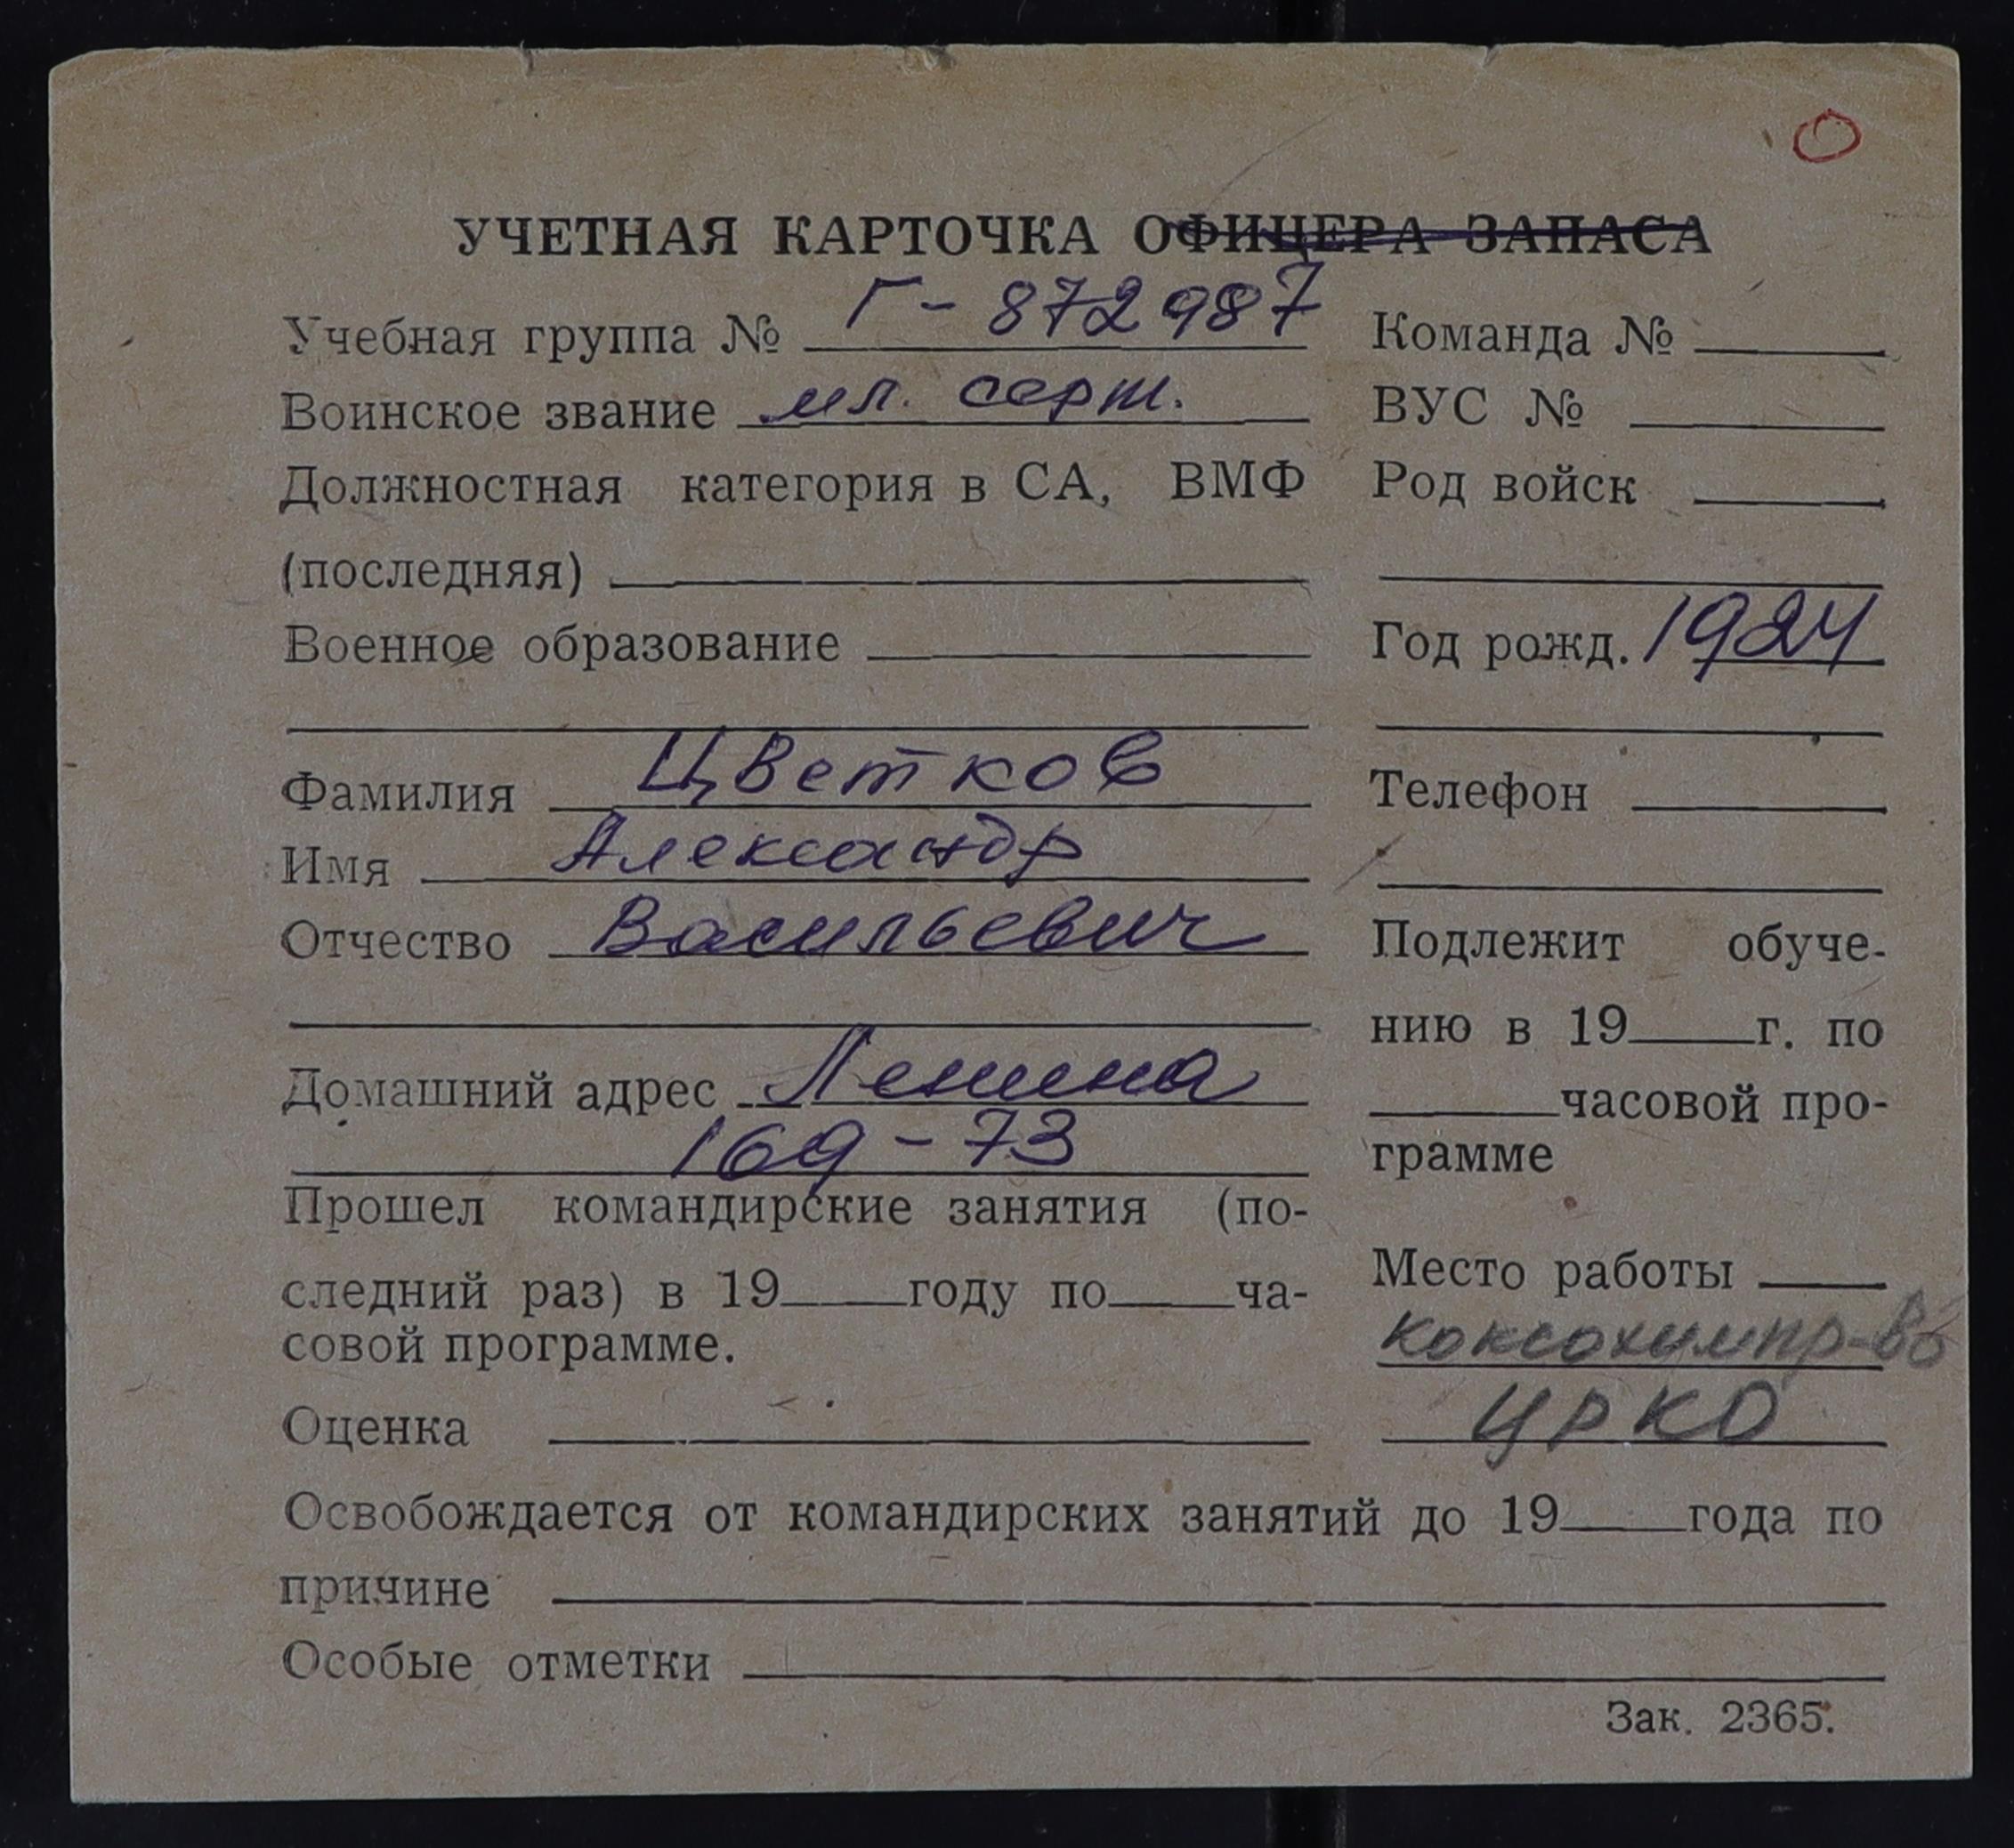 УЧЕТНАЯ КАРТОЧКА ОФИЦЕРА ЗАПАСА
Учебная группа № Г-872987
Воинское звание мл. серж.
Должностная категория в СА, ВМФ
(последняя)
Военное образование
Фамилия Цветков
Имя Александр
Отчество Васильевич
Домашний адрес Ленина
169-73
Прошел командирские занятия (по-
следний раз) в 19 году по ча-
совой программе.
Оценка
Команда №
ВУС №
Род войск
Год рожд. 1924
Телефон
Подлежит обуче-
нию в 19 г. по
часовой про-
грамме
Место работы
коксохимпр-во
ЦРКО
Освобождается от командирских занятий до 19 года по
причине
Особые отметки
Зак. 2365.